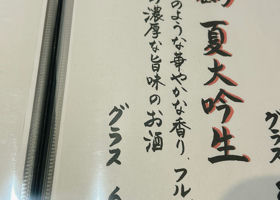 グラス
夏大吟生
のような華やかな香り、フル
濃厚な旨味のお酒
グラス